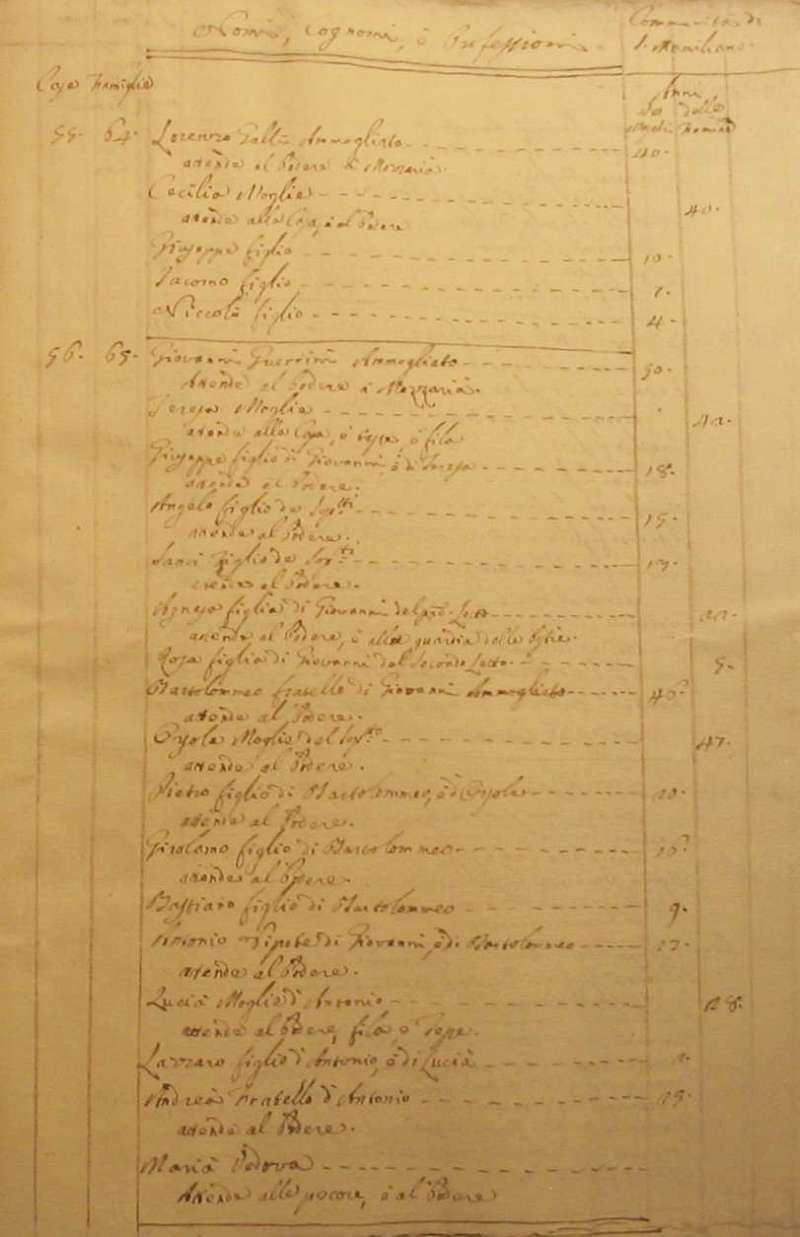 Nomi, Cognomi, è Professioni
Communità di
Case Famiglie
Anni
55. 64. Lorenzo Galli Ammogliato 40.
atende al Podere à Mezzaria
Cecilia Moglie 40.
atende alla Casa, è al Podere
Giuseppe figlio 10.
Iacomo figlio 7.
Niccola figlio 4.
56. 65. Giovanni Guerrini Ammogliato 50.
Atende al Podere à Mezzaria.
Teresa Moglie
atende alla Casa, è tesse, è fila
Giuseppe figlio di Giovanni è di Teresa 18.
atende al Podere.
Angelo figlio de 15.
atende al Podere.
Santi figlio de
atende al Podere.
Agnesa figlia di Giovanni del Letto
atende al Podere, è alla guardia delle
Rosa figlia di Giovanni del Secondo Letto 5.
Bartolommeo fratello di Giovanni Ammogliato 46.
atende al Podere.
Orsola Moglie del 47.
atende al Podere.
Pietro figlio di Bartolommeo, è di Orsola
atende al Podere.
Girolamo figlio di Bartolommeo
atende al Podere.
Bastiano figlio di Bartolommeo 9.
Antonio Nipote di Giovanni, è di Bartolommeo 27.
atende al Podere.
Lucia Moglie d'Antonio 28.
atende al Podere, fila, è tesse.
Lazzaro figlio d'Antonio, è di Lucia 1.
Andrea Fratello d'Antonio
atende al Podere.
Maria Vedova
Atende alle pecore, è al Podere